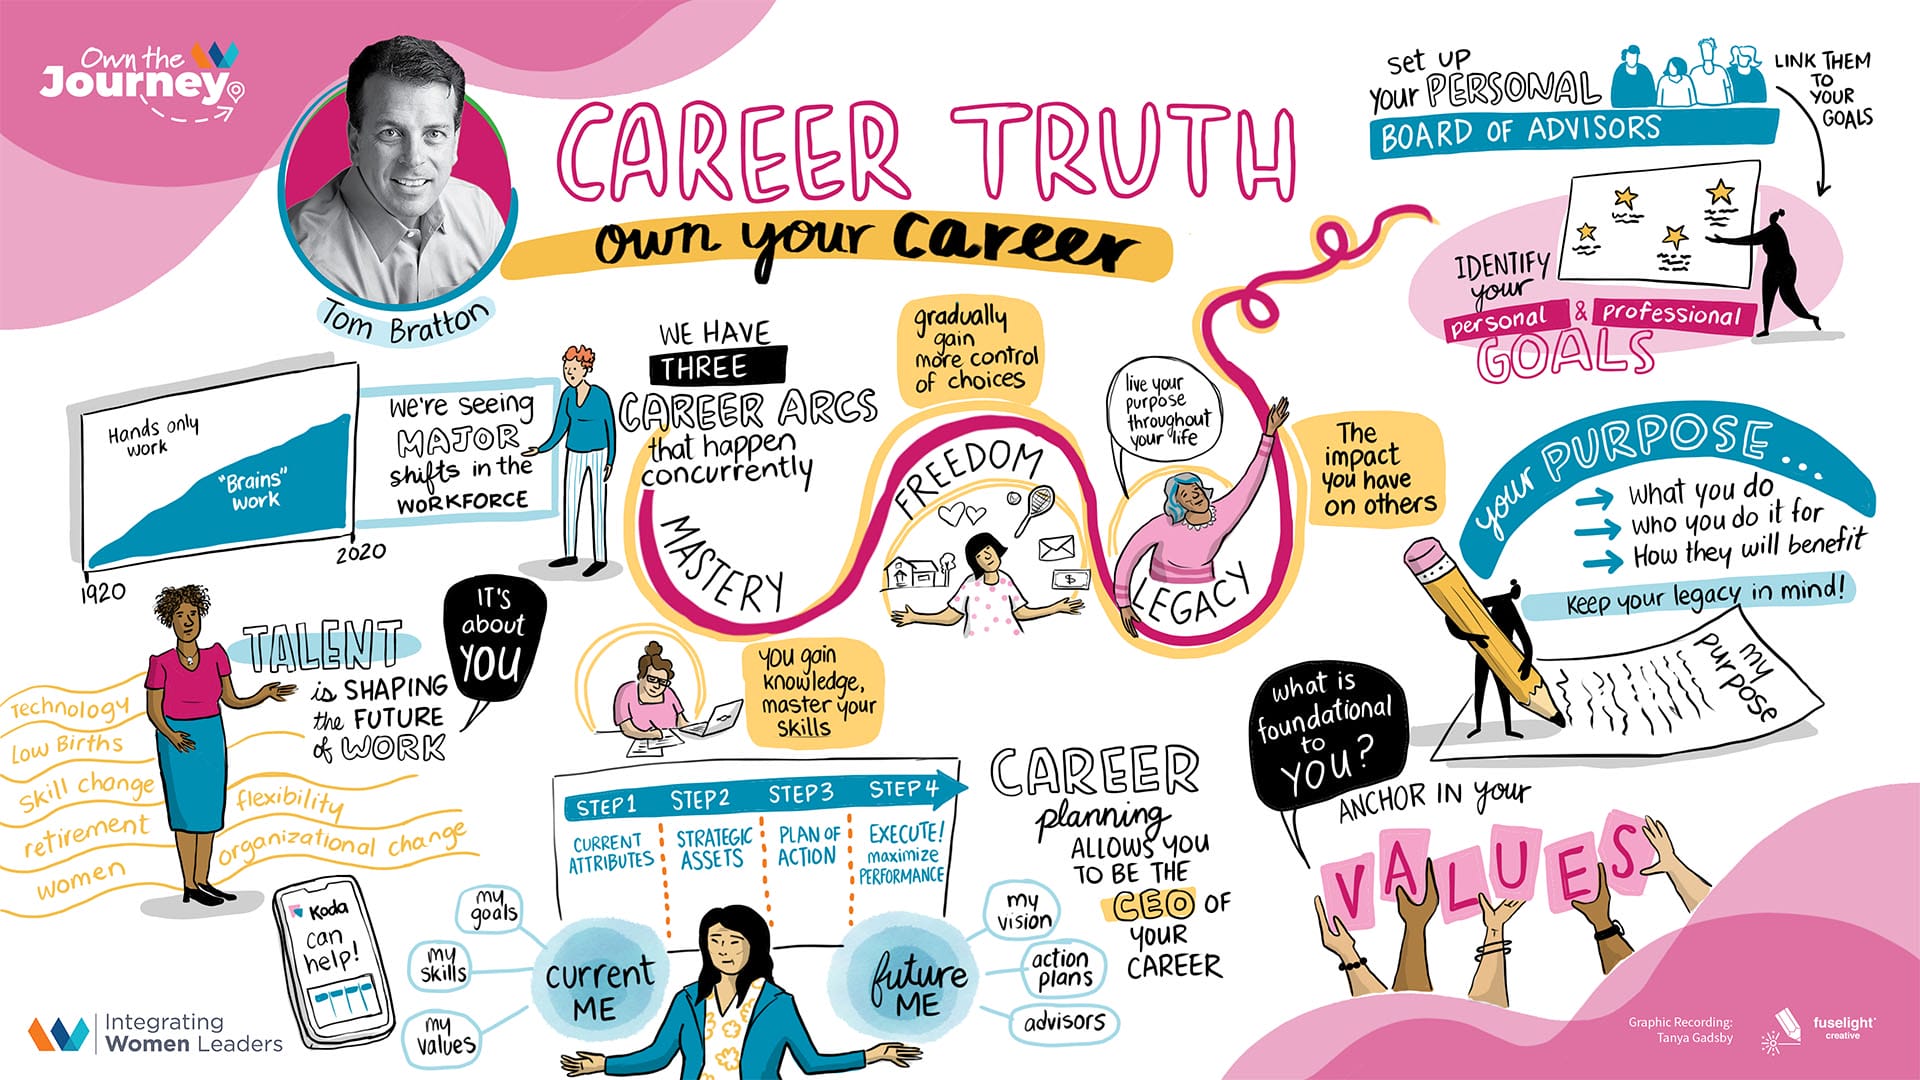 Own the
Journey
Tom Bratton
CAREER TRUTH
own your career
set up
your PERSONAL
BOARD OF ADVISORS
LINK THEM
TO
YOUR
GOALS
IDENTIFY
your
personal & professional
GOALS
Hands only
work
"Brains"
work
1920
2020
We're seeing
MAJOR
shifts in the
WORKFORCE
WE HAVE
THREE
CAREER ARCS
that happen
concurrently
MASTERY
you gain
knowledge,
master your
skills
FREEDOM
gradually
gain
more control
of choices
$
live your
purpose
throughout
your life
LEGACY
The
impact
you have
on others
your PURPOSE...
What you do
Who you do it for
How they will benefit
Keep your legacy in mind!
my
purpose
TALENT
is SHAPING
the FUTURE
of WORK
IT'S
about
YOU
Technology
Low Births
skill change
retirement
women
flexibility
organizational change
Koda
can
help!
STEP 1
STEP 2
STEP 3
STEP 4
CURRENT
ATTRIBUTES
STRATEGIC
ASSETS
PLAN OF
ACTION
EXECUTE!
maximize
PERFORMANCE
my
goals
my
skills
my
values
current
ME
future
ME
my
vision
action
plans
advisors
CAREER
planning
ALLOWS YOU
TO BE THE
CEO OF
YOUR
CAREER
What is
foundational
to
YOU?
ANCHOR IN your
VALUES
Integrating
Women Leaders
Graphic Recording:
Tanya Gadsby
fuselight
creative